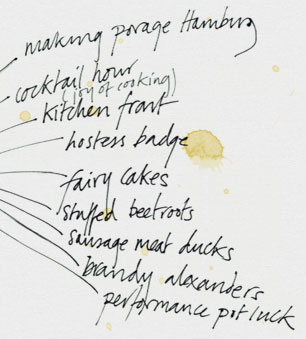 making porage Hamburg
cocktail hour
(joy of cooking)
kitchen frart
hostess badge
fairy cakes
stuffed beetroots
sausage meat ducks
brandy alexanders
performance pot luck